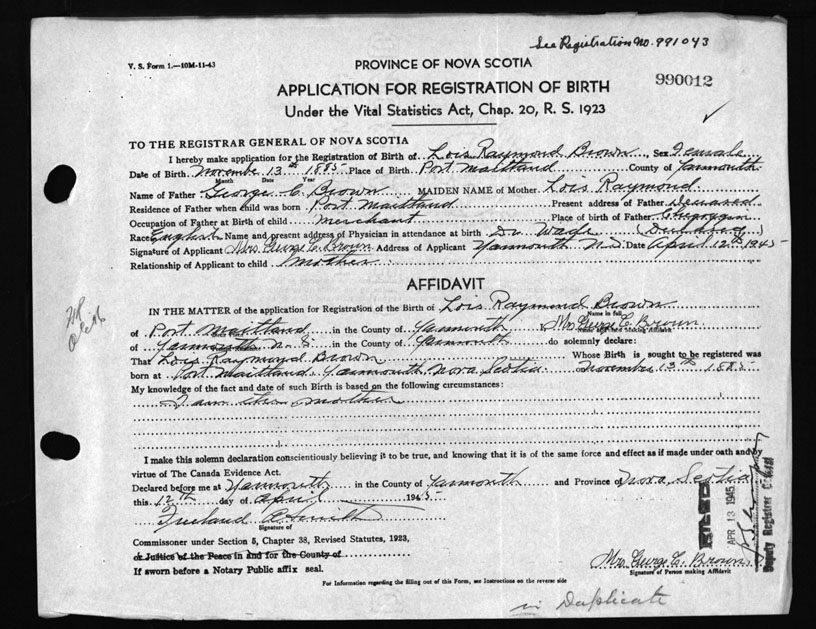 See Registration No. 991043
V. S. Form 1.—10M-11-43
PROVINCE OF NOVA SCOTIA
990012
APPLICATION FOR REGISTRATION OF BIRTH
Under the Vital Statistics Act, Chap. 20, R. S. 1923
TO THE REGISTRAR GENERAL OF NOVA SCOTIA
I hereby make application for the Registration of Birth of Lois Raymond Brown Sex Female
Date of Birth November 13th 1885 Place of Birth Port Maitland County of Yarmouth
Month Date Year
Name of Father George C. Brown MAIDEN NAME of Mother Lois Raymond
Residence of Father when child was born Port Maitland Present address of Father Deceased
Occupation of Father at Birth of child merchant Place of birth of Father
Race English Name and present address of Physician in attendance at birth Dr Wade
Signature of Applicant Mrs. George C. Brown Address of Applicant Yarmouth N.S. Date April 12th 1945
Relationship of Applicant to child mother
AFFIDAVIT
IN THE MATTER of the application for Registration of the Birth of Lois Raymond Brown
Name in full
of Port Maitland in the County of Yarmouth Mrs George C. Brown
of Yarmouth N. S. in the County of Yarmouth do solemnly declare:
That Lois Raymond Brown Whose Birth is sought to be registered was
born at Port Maitland, Yarmouth, Nova Scotia November 13th 1885
My knowledge of the fact and date of such Birth is based on the following circumstances:
I am the mother
I make this solemn declaration conscientiously believing it to be true, and knowing that it is of the same force and effect as if made under oath and by
virtue of The Canada Evidence Act.
Declared before me at Yarmouth in the County of Yarmouth and Province of Nova Scotia
this 12th day of April 1945
Signature of
Commissioner under Section 5, Chapter 38, Revised Statutes, 1923,
or Justice of the Peace in and for the County of
If sworn before a Notary Public affix seal.
FILED
APR 13 1945
Deputy Registrar General
Mrs. George C. Brown
Signature of Person making Affidavit
For Information regarding the filling out of this Form, see Instructions on the reverse side
in Duplicate